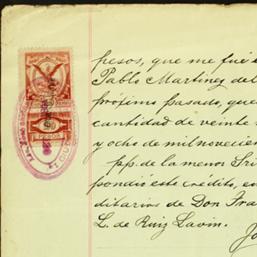 pesos, que me fué
Pablo Martinez del
próximo pasado, que
cantidad de veinte
y ocho de mil novecien
pp. de la menor Sri
pondió este crédito, en
ditarios de Don Fra
L. de Ruiz Lavin.
Jo
PESOS